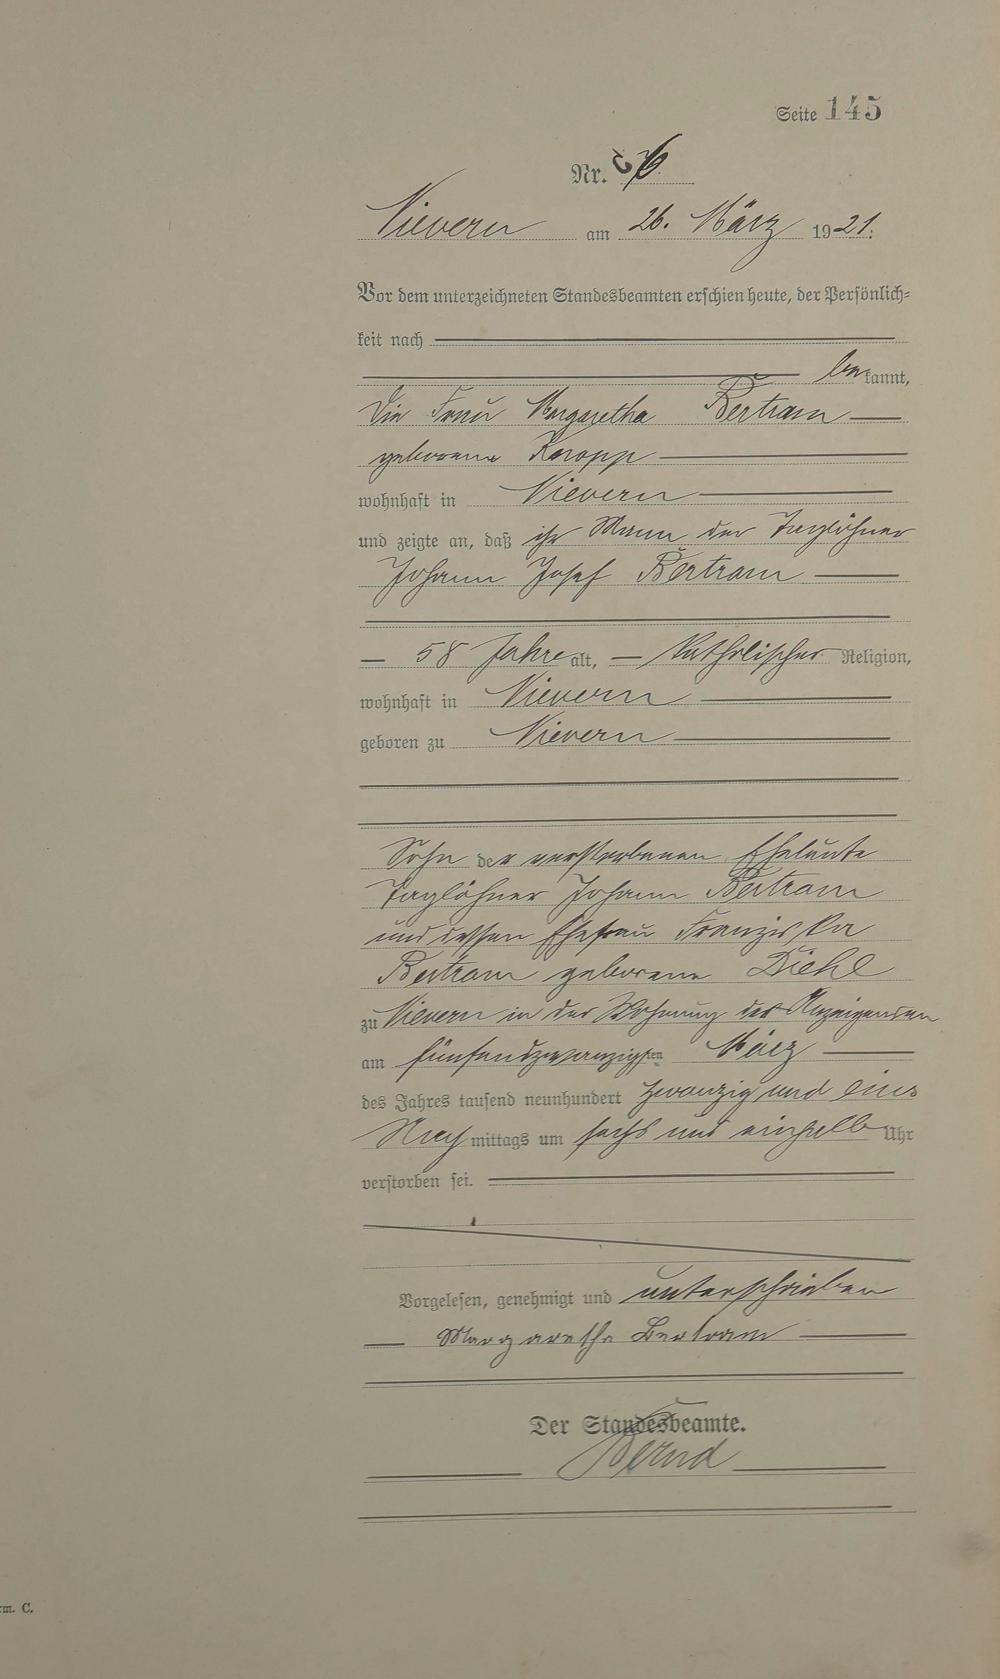 Seite 145
Nr. 6
Nievern am 26. März 1921.
Vor dem unterzeichneten Standesbeamten erschien heute, der Persönlich-
keit nach
bekannt,
die Frau Margaretha Bertram
geborene Knopp
wohnhaft in Nievern
und zeigte an, daß ihr Mann der Taglöhner
Johann Josef Bertram
58 Jahre alt, katholischer Religion,
wohnhaft in Nievern
geboren zu Nievern
Sohn der verstorbenen Eheleute
Taglöhner Johann Bertram
und dessen Ehefrau Franziska
Bertram geborene Diehl
zu Nievern in der Wohnung der Anzeigenden
am fünfundzwanzigsten März
des Jahres tausend neunhundert zwanzig und eins
Nachmittags um sechs und einhalb Uhr
verstorben sei.
Vorgelesen, genehmigt und unterschrieben
Margaretha Bertram
Der Standesbeamte.
Bernd
rm. C.